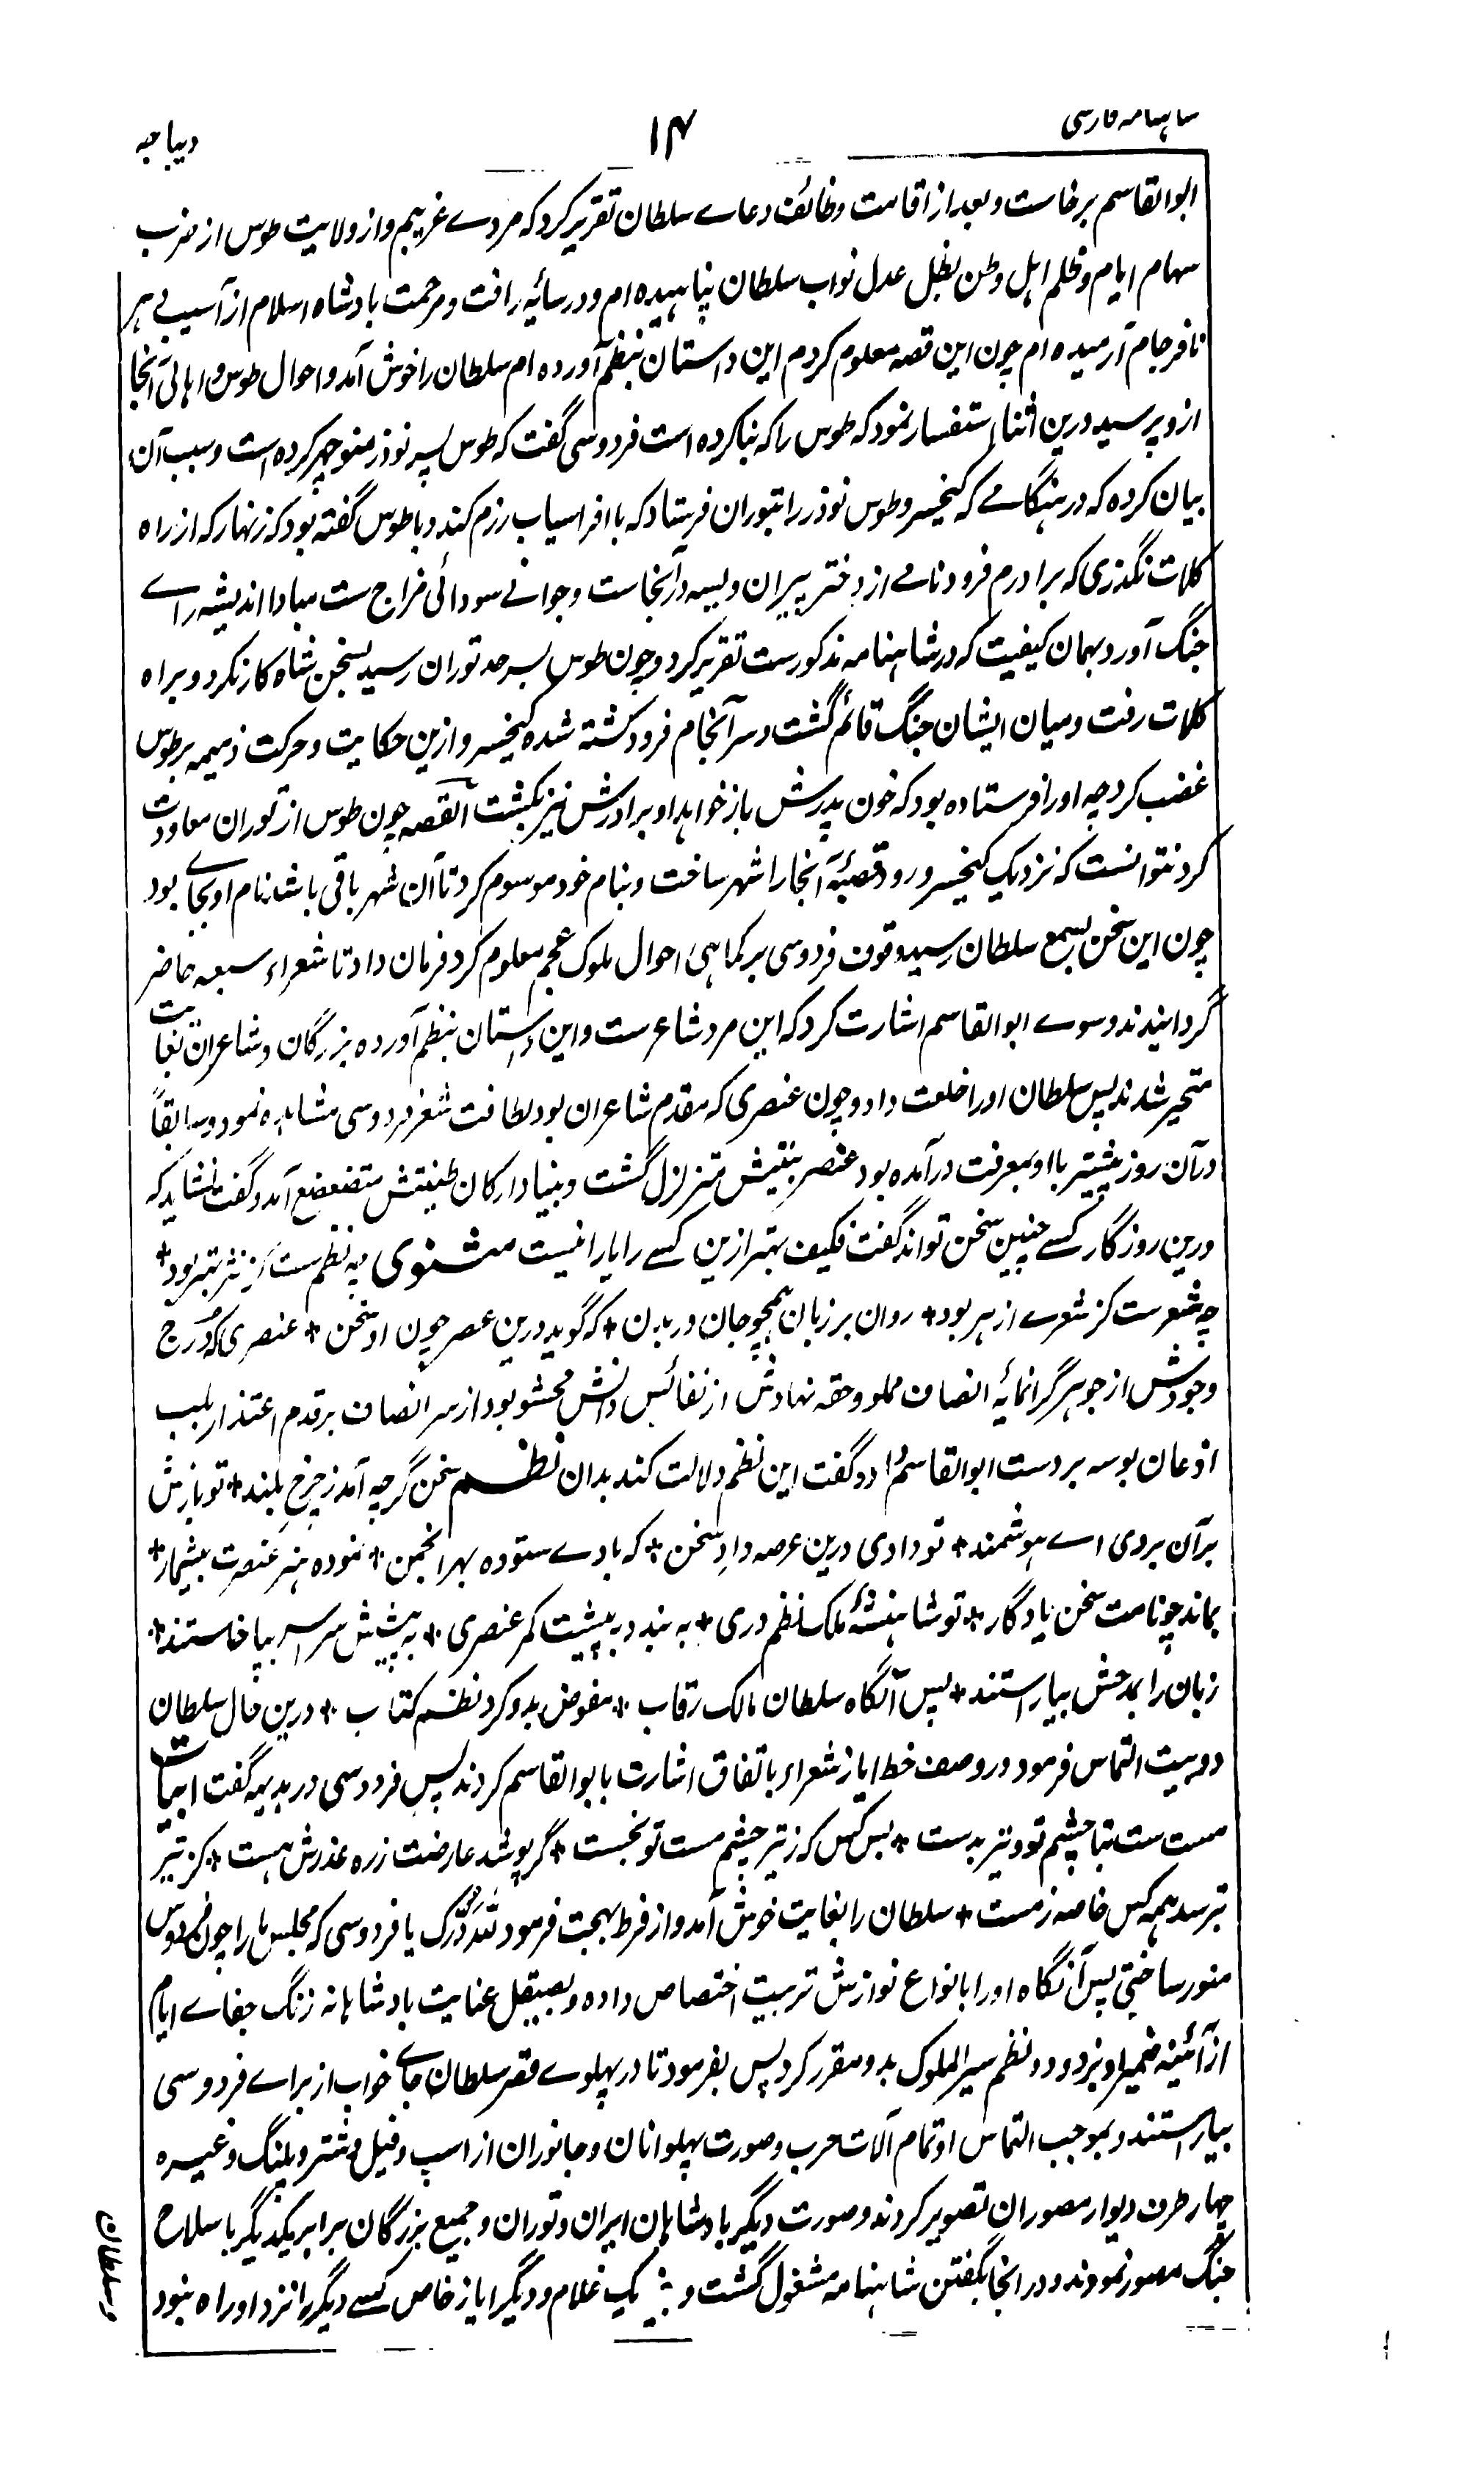 شاہنامہ فارسی
۱۴
دیباچہ
ابوالقاسم برخاست و بعد از اقامت وظائف دعاے سلطان تقریر کرد کہ مردے غریبم و از ولایت طوس از ضرب
سہام ایام و ظلم اہل وطن بظل عدل نواب سلطان پناہیدہ ام و در سائیہ رافت و مرحمت بادشاہ اسلام از آسیب ہر
نافرجام آرمیدہ ام چون این قصہ معلوم کردم این داستان بنظم آوردہ ام سلطان را خوش آمد و احوال طوس و اہالی آنجا
از و پرسید درین اثنا استفسار نمود کہ طوس را کہ بنا کردہ است فردوسی گفت کہ طوس پسر نوذر منوچہر کردہ است و سبب آن
بیان کردہ کہ در ہنگامے کہ کیخسرو طوس نوذر را بتوران فرستاد کہ با افراسیاب رزم کند و با طوس گفتہ بود کہ زنہار کہ از راہ
کلات نگذری کہ برادرم فرود نامے از دختر پیران ویسہ در آنجاست و جوانے سودائی مزاج ست مبادا اندیشہ راے
جنگ آورد بہمان کیفیت کہ در شاہنامہ مذکورست تقریر کرد و چون طوس بسرحد توران رسید بسخن شاہ کار نکرد و براہ
کلات رفت و میان ایشان جنگ قائم گشت و سرآنجام فرود کشتہ شدہ کیخسرو ازین حکایت و حرکت ذمیمہ بر طوس
غضب کرد چہ او را فرستادہ بود کہ خون پدرش باز خواہد او برادرش نیز بکشت القصہ چون طوس از توران معاودت
کرد نتوانست کہ نزدیک کیخسرو رود قصبۂ آنجا را شہر ساخت و بنام خود موسوم کرد تا آن شہر باقی باشد نام او بجاے بود
چون این سخن بسمع سلطان رسید وقوف فردوسی بر کماہی احوال ملوک عجم معلوم کرد فرمان داد تا شعراء سبعہ حاضر
گردانیدند و سوے ابوالقاسم اشارت کرد کہ این مرد شاعرست و این داستان بنظم آوردہ بزرگان و شاعران بغایت
متحیر شدند پس سلطان او را خلعت داد و چون عنصری کہ مقدم شاعران بود لطافت شعر فردوسی مشاہدہ نمود و سابقاً
در آن روز پیشتر با او بمعرفت در آمدہ بود عنصر بنیتش متزلزل گشت و بنیاد ارکان طینتش متضعضع آمد و گفت نشاید کہ
درین روزگار کسے چنین سخن تواند گفت فکیف بہتر ازین کسے را یارا نیست مثنوی چہ نظم ست کز نثر بہتر بود *
چہ شعرست کز شعرے از ہر بود * روان بر زبان ہمچو جان در بدن * کہ گوید درین عصر چون او سخن * عنصری کہ درج
وجودش از جوہر گرانمائیہ انصاف مملو و حقہ نہادش از نفائس دانش محشو بود از سر انصاف بر قدم اعتذار بلب
اذعان بوسہ بر دست ابوالقاسم داد و گفت این نظم دلالت کند بدان نظم سخن گرچہ آمد ز چرخ بلند * تو بازش
بر آن بردی اے ہوشمند * تو دادی درین عرصہ داد سخن * کہ بادے ستودہ بہر انجمن * نمودہ ہنر عنصرت بیشمار *
بماند چو نامت سخن یادگار * تو شاہنشہ ملک نظم دری * بہ بندد بہ پیشت کمر عنصری * بہ پیشش سراسر بپا خاستند *
زبان را بمدحش بیاراستند * پس آنگاہ سلطان مالک رقاب * مفوض بدو کرد نظم کتاب * درین حال سلطان
دو بیت التماس فرمود در وصف خط ایاز شعراء باتفاق اشارت بابوالقاسم کردند پس فردوسی در بدیہہ گفت ابیات
مست ست بتا چشم تو و تیر بدست * بس کس کہ ز تیر چشم مست تو بخست * گر پوشد عارضت زرہ عذرش ہست * کز تیر
بترسد ہمہ کس خاصہ ز مست * سلطان را بغایت خوش آمد و از فرط بہجت فرمود للہ درک یا فردوسی کہ مجلس ما را چون فردوس
منور ساختی پس آنگاہ او را بانواع نوازش تربیت اختصاص دادہ و بصیقل عنایت بادشاہانہ زنگ جفاے ایام
از آئینہ ضمیر او بزدود و نظم سیر الملوک بدو مقرر کرد پس بفرمود تا در پہلوے قصر سلطان جاے خواب از براے فردوسی
بیاراستند و بموجب التماس او تمام آلات حرب و صورت پہلوانان و جانوران از اسپ و فیل و شتر و پلنگ و غیرہ
چہار طرف دیوار مصوران تصویر کردند و صورت دیگر بادشاہان ایران و توران و جمیع بزرگان برابر یکدیگر با سلاح
جنگ مصور نمودند و در آنجا بگفتن شاہنامہ مشغول گشت و بغیر یک غلام و دیگر ایاز خاص کسے دیگر را نزد او راہ نبود
و سلطان